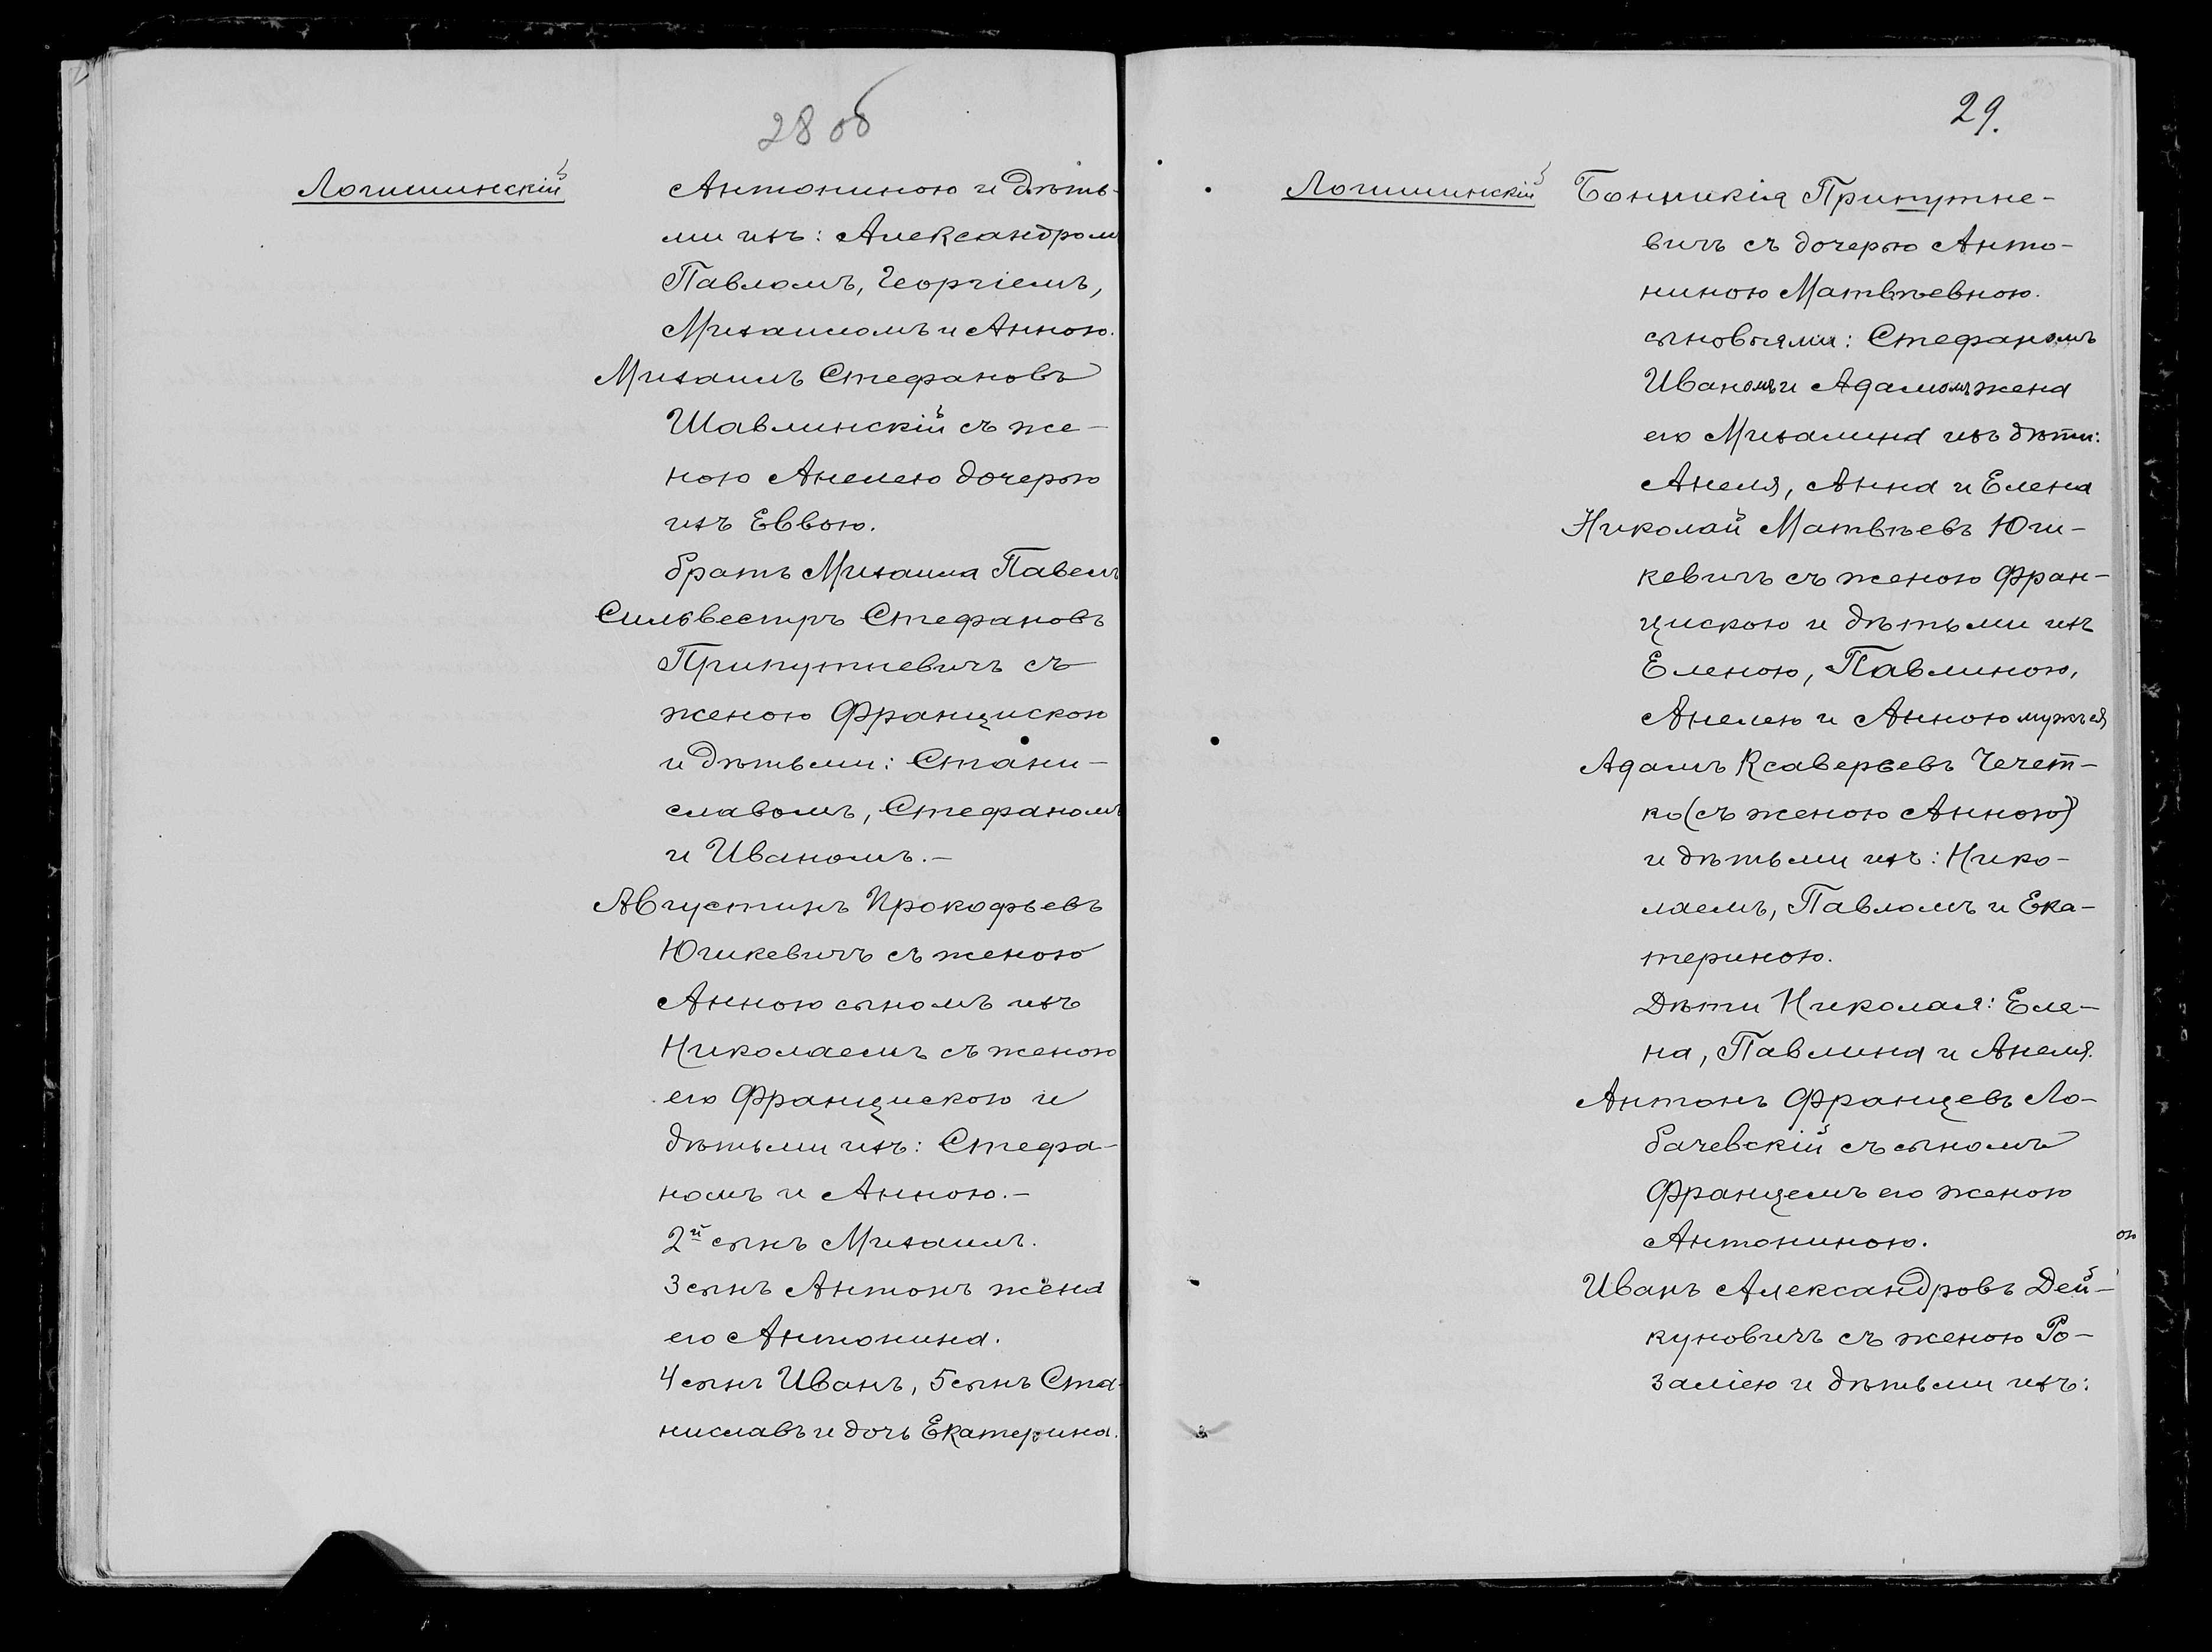 28 об
Логишинскій
Антониною и дѣть-
ми ихъ: Александром
Павломъ, Георгіемъ,
Михаиломъ и Анною.
Михаилъ Стефановъ
Шавлинскій съ же-
ною Анелею дочерью
ихъ Еввою.
братъ Михаила Павелъ
Сильвестръ Стефановъ
Припутневичъ съ
женою Францискою
и дѣтьми: Стани-
славомъ, Стефаномъ
и Иваномъ.-
Августинъ Прокофьевъ
Югикевичъ съ женою
Анною сыномъ ихъ
Николаемъ съ женою
его Францискою и
дѣтьми ихъ: Стефа-
номъ и Анною.-
2й сынъ Михаилъ.
3 сынъ Антонъ жена
его Антонина.
4 сынъ Иванъ, 5 сынъ Ста-
ниславъ и дочь Екатерина.
29.
Логишинскій
Припутне-
вичъ съ дочерью Анто-
ниною Матвѣевною.
сыновьями: Стефаномъ
Иваномъ и Адамомъ жена
его Михалина ихъ дѣти:
Анеля, Анна и Елена
Николай Матвѣевъ Юги-
кевичъ съ женою Фран-
цискою и дѣтьми ихъ
Еленою, Павлиною,
Анелею и Анною мужъ ея
Адамъ Ксаверьевъ Чечет-
ко (съ женою Анною)
и дѣтьми ихъ: Нико-
лаемъ, Павломъ и Ека-
териною.
Дѣти Николая: Еле-
на, Павлина и Анеля.
Антонъ Францевъ Ло-
бачевскій съ сыномъ
Францемъ его женою
Антониною.
Иванъ Александровъ Дей-
куновичъ съ женою Ро-
заліею и дѣтьми ихъ: